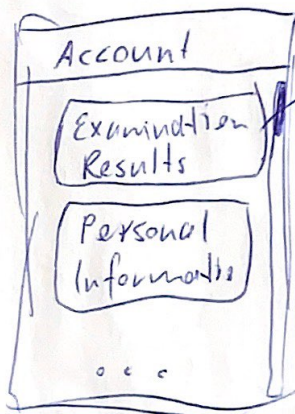 Account
Examination
Results
Personal
Informatio
...